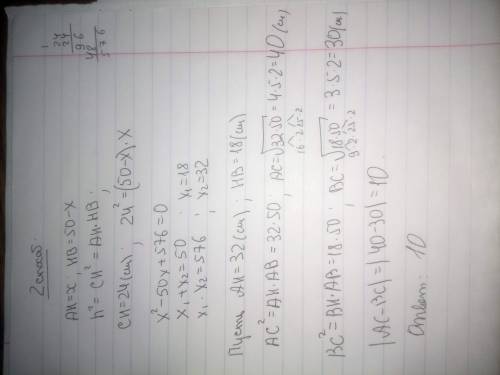 2 способ.
AH=x, HB=50-x
h²=CH²=AH·HB;
CH=24(см); 24²=(50-x)·x
x²-50x+576=0
x₁+x₂=50 ; x₁=18
x₁·x₂=576 ; x₂=32
Пусть AH=32(см); HB=18(см)
AC²=AH·AB=32·50; AC=√32·50=4·5·2=40(см)
16·2 25·2
BC²=BH·AB=18·50; BC=√18·50=3·5·2=30(см)
9·2 25·2
|AC-BC|=|40-30|=10.
Ответ: 10
1
24
24
96
48
576